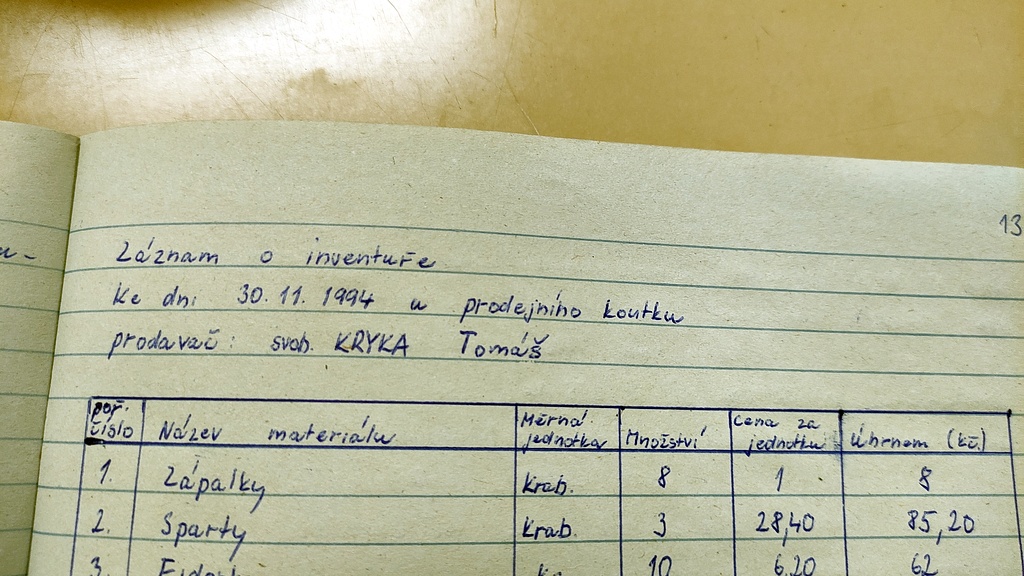 13
Záznam o inventuře
Ke dni 30.11.1994 u prodejního koutku
prodavač: svob. KRYKA Tomáš
poř. číslo Název materiálu Měrná jednotka Množství Cena za jednotku Úhrnem (kč.)
1. Zápalky Krab. 8 1 8
2. Sparty Krab. 3 28,40 85,20
3. 10 6,20 62